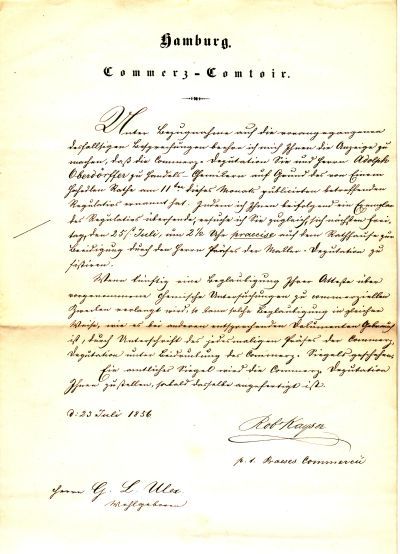 Hamburg.
Commerz-Comtoir.
Unter Bezugnahme auf die vorangegangenen
desfallsigen Besprechungen beehre ich mich Ihnen die Anzeige zu
machen, daß die Commerz-Deputation Sie und Herrn Adolph
Oberdörffer zu Handels-Chemikern auf Grund des von Einem
Hohedlen Rathe am 11ten dieses Monats publicirten betreffenden
Regulativs ernannt hat. Indem ich Ihnen beifolgend ein Exemplar
des Regulativs übersende, ersuche ich Sie zugleich sich nächsten Frei-
tag, den 25t Juli, um 2½ Uhr praecise auf dem Rathhause zur
Beeidigung durch den Herrn Präses der Maller-Deputation zu
sistiren.
Wenn künftig eine Beglaubigung Ihrer Atteste über
vorgenommene chemische Untersuchungen zu commerziellen
Zwecken verlangt wird, so kann solche Beglaubigung in gleicher
Weise, wie es bei anderen entsprechenden Documenten Gebrauch
ist, durch Unterschrift des jedesmaligen Präses der Commerz-
Deputation unter Beidrückung des Commerz-Siegels geschehen.
Ein amtliches Siegel wird die Commerz Deputation
Ihnen zustellen, sobald dasselbe angefertigt ist.
d: 23 Juli 1856
Rob Kayser
p. t. Praeses Commercii
Herrn G. L. Ulex
Wohlgeboren